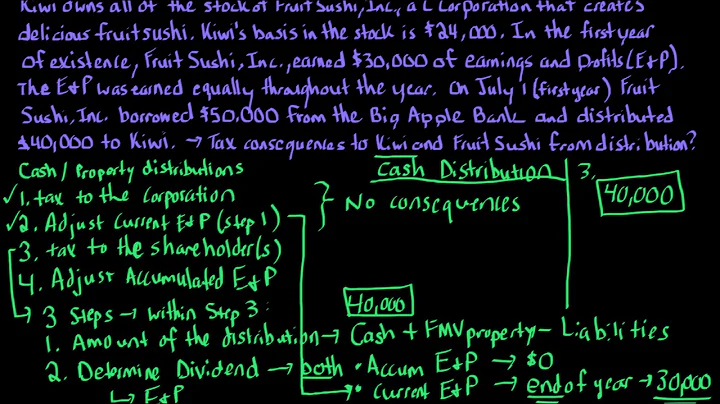 Kiwi owns all of the stock of Fruit Sushi, Inc., a C Corporation that creates
delicious fruit sushi. Kiwi's basis in the stock is $24,000. In the first year
of existence, Fruit Sushi, Inc., earned $30,000 of earnings and Profits (E+P).
The E+P was earned equally throughout the year. On July 1 (first year) Fruit
Sushi, Inc. borrowed $50,000 from the Big Apple Bank and distributed
$40,000 to Kiwi. → Tax consequences to Kiwi and Fruit Sushi from distribution?
Cash / Property distributions
✓ 1. tax to the Corporation
✓ 2. Adjust Current E+P (step 1)
3. tax to the shareholder(s)
4. Adjust Accumulated E+P
↳ 3 Steps → within Step 3:
Cash Distribution
No consequences
3.
40,000
40,000
1. Amount of the distribution → Cash + FMV property - Liabilities
2. Determine Dividend → both • Accum E+P → $0
• Current E+P → end of year → 30,000
↳ E+P